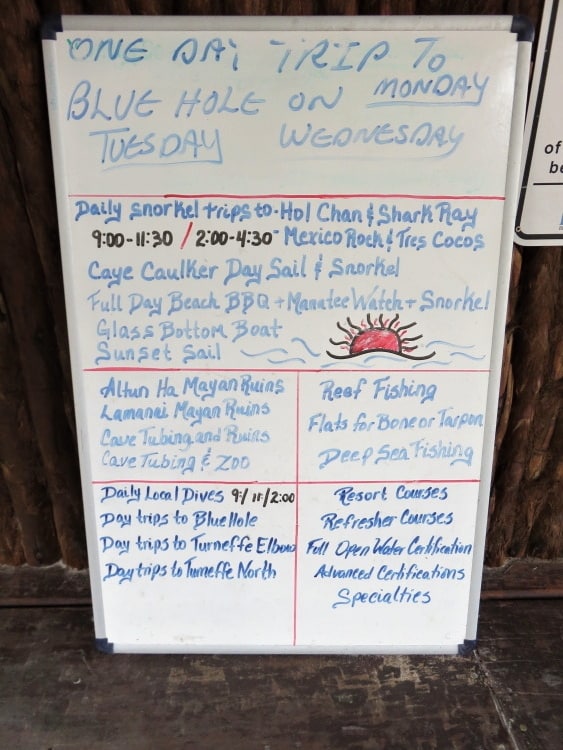 ONE DAY TRIP TO
BLUE HOLE ON MONDAY
TUESDAY WEDNESDAY
Daily snorkel trips to - Hol Chan & Shark Ray
9:00-11:30 / 2:00-4:30 - Mexico Rock & Tres Cocos
Caye Caulker Day Sail & Snorkel
Full Day Beach BBQ + Manatee Watch + Snorkel
Glass Bottom Boat
Sunset Sail
Altun Ha Mayan Ruins
Lamanai Mayan Ruins
Cave Tubing and Ruins
Cave Tubing & Zoo
Reef Fishing
Flats for Bone or Tarpon
Deep Sea Fishing
Daily Local Dives 9:/11:/2:00
Day trips to Blue Hole
Day trips to Turneffe Elbow
Day trips to Turneffe North
Resort Courses
Refresher Courses
Full Open Water Certification
Advanced Certifications
Specialties
of
be